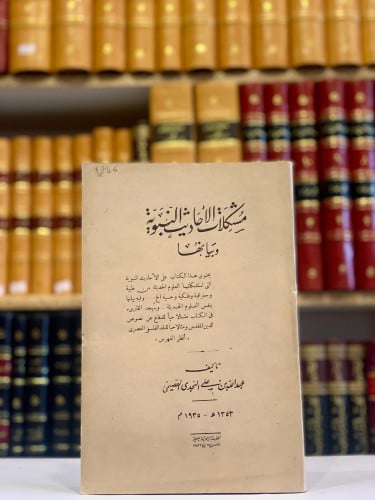 مشكلات الأحاديث النبوية
وبيانها
يحتوي هذا الكتاب على الأحاديث النبوية
التي استشكلتها العلوم الحديثة من طبية
وجغرافية وفلكية وحسية الخ وفيه بيانها
بنفس العلوم الحديثة. وسيجد القارىء
في الكتاب مثالا حياً للدفاع عن نصوص
الدين المقدس ومثالا حيا للنقد العلمي
انظر الفهرس
تأليف
عبد الله بن علي النجدي القصيمي
١٣٥٣ هـ - ١٩٣٥ م